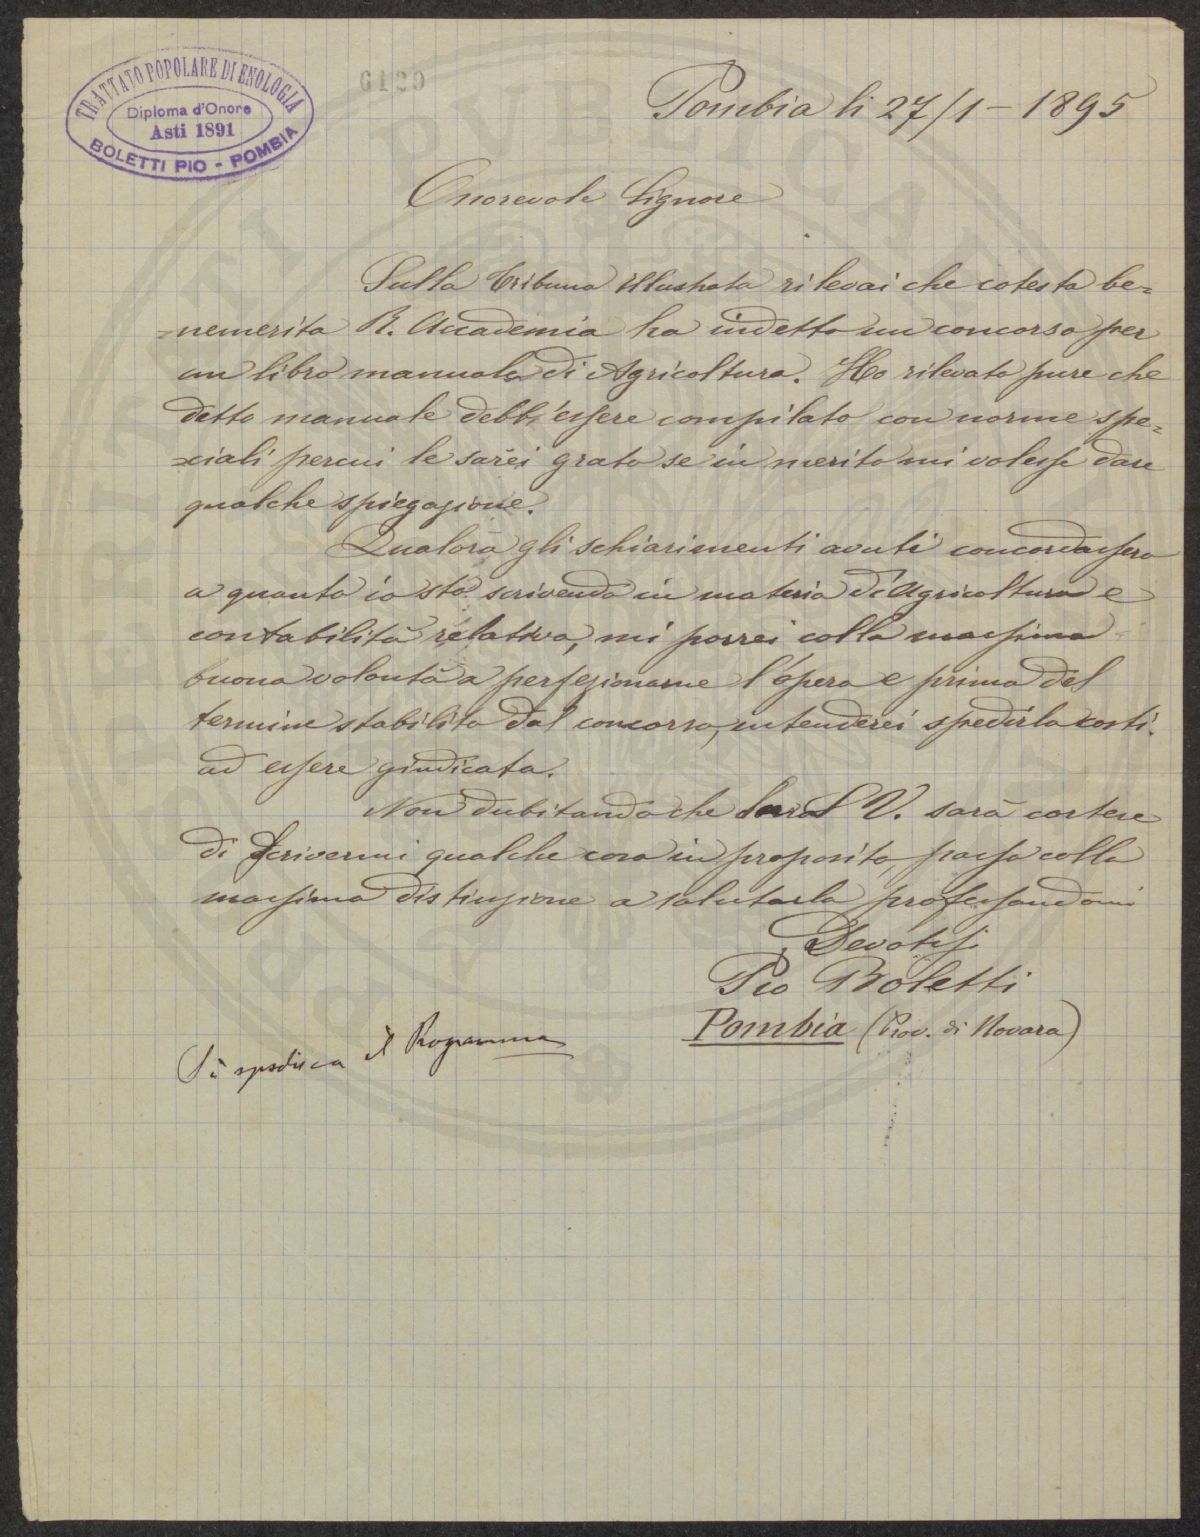 TRATTATO POPOLARE DI ENOLOGIA
Diploma d'Onore
Asti 1891
BOLETTI PIO - POMBIA
Pombia li 27/1 - 1895
Onorevole Signore
Sulla Tribuna illustrata rilevai che cotesta be=
=nemerita R. Accademia ha indetto un concorso per
un libro manuale di Agricoltura. Ho rilevato pure che
detto manuale debb'essere compilato con norme spe=
=ciali percui le sarei grato se in merito mi volesse dare
qualche spiegazione.
Qualora gli schiarimenti avuti concordassero
a quanto io sto scrivendo in materia di Agricoltura e
contabilità relativa, mi porrei colla massima
buona volontà a perfezionarne l'opera e prima del
termine stabilito dal concorso, intenderei spedirla costì
ad essere giudicata.
Non dubitando che la S V. sarà cortese
di scrivermi qualche cosa in proposito, passo colla
massima distinzione a salutarla professandomi
Devotiss
Pio Boletti
Pombia (Prov. di Novara)
Si spedisca il Programma